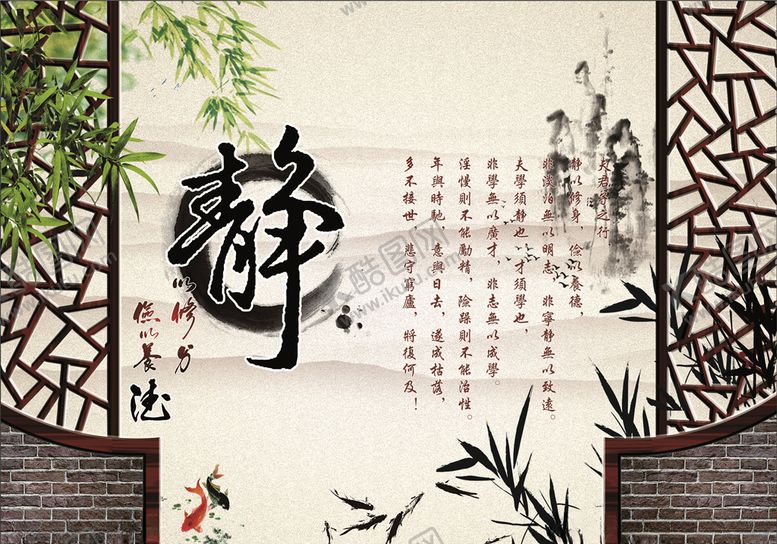 靜
以修身
儉以養
德
夫君子之行
靜以修身，儉以養德，
非淡泊無以明志，非寧靜無以致遠。
夫學須靜也，才須學也，
非學無以廣才，非志無以成學。
淫慢則不能勵精，險躁則不能治性。
年與時馳，意與日去，遂成枯落，
多不接世，悲守窮廬，將復何及！
酷图网
www.ikutu.com